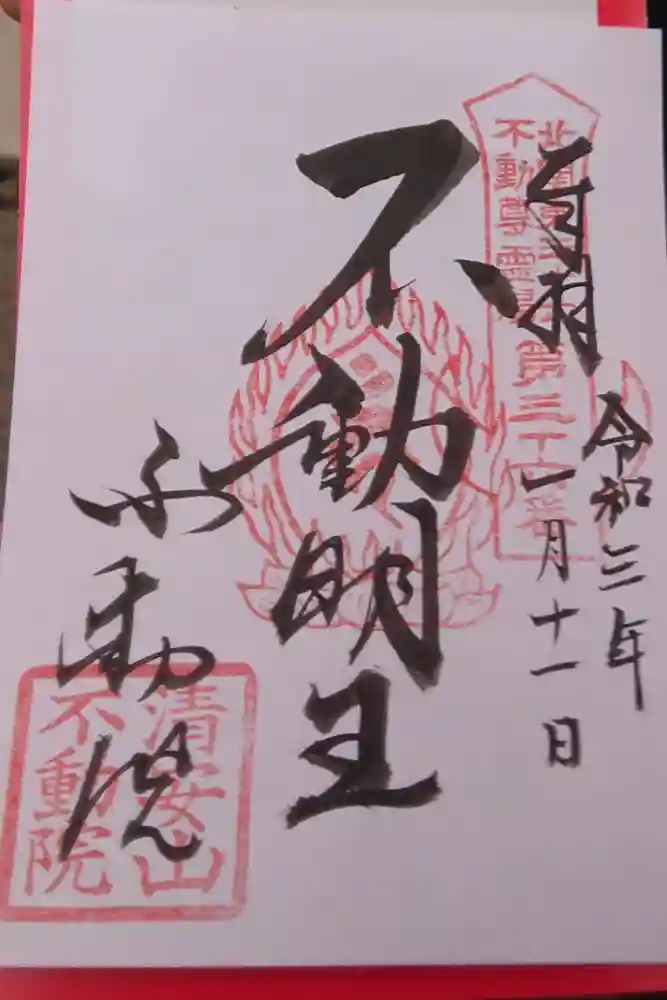 奉拝
令和三年
一月十一日
北関東三十六
不動尊霊場第三十四番
不動明王
不動院
清安山
不動院